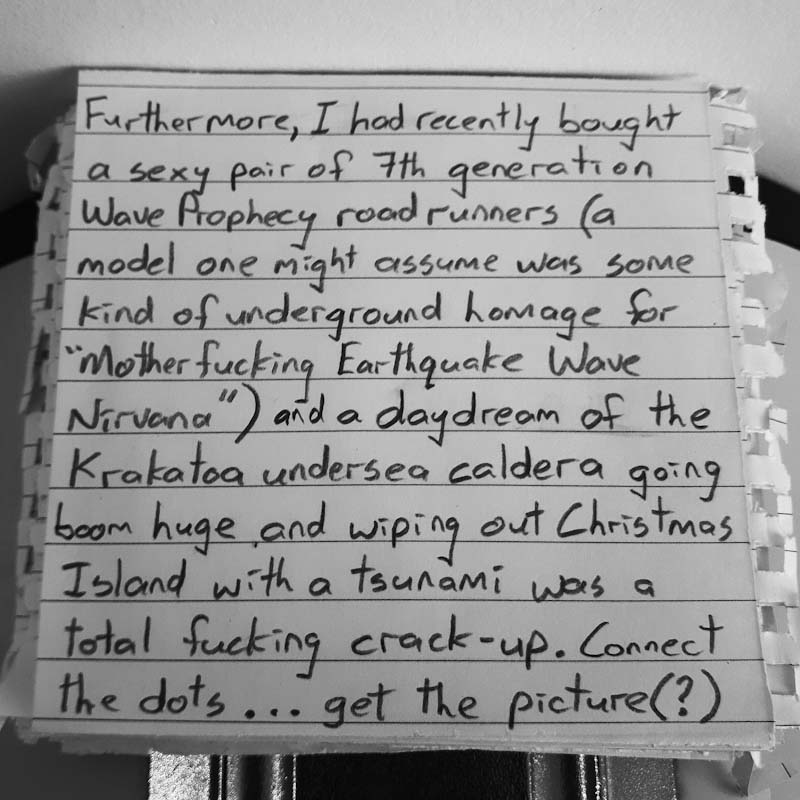 Furthermore, I had recently bought
a sexy pair of 7th generation
Wave Prophecy road runners (a
model one might assume was some
kind of underground homage for
"Motherfucking Earthquake Wave
Nirvana") and a daydream of the
Krakatoa undersea caldera going
boom huge and wiping out Christmas
Island with a tsunami was a
total fucking crack-up. Connect
the dots... get the picture(?)